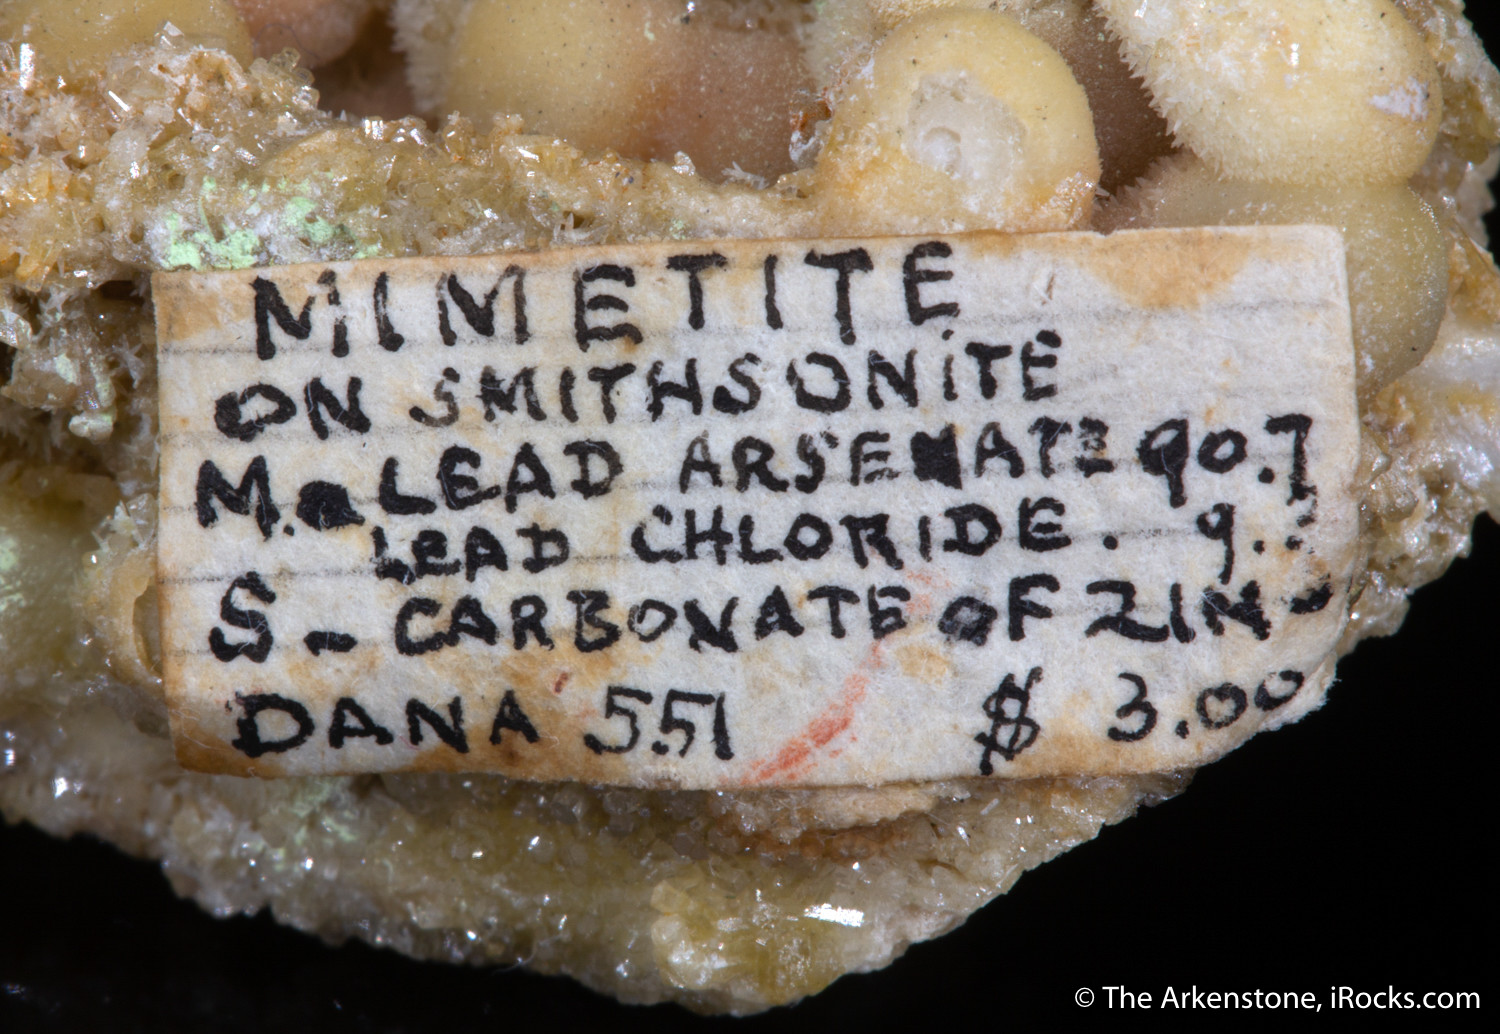 MIMETITE
ON SMITHSONITE
M. LEAD ARSENATE 90.7
LEAD CHLORIDE. 9.
S - CARBONATE OF ZIN-
DANA 551 $ 3.00
© The Arkenstone, iRocks.com